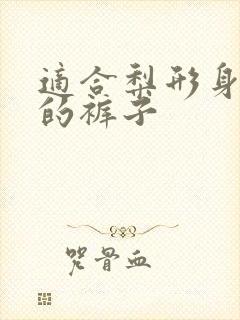 適合梨形身
的裤子
骨血